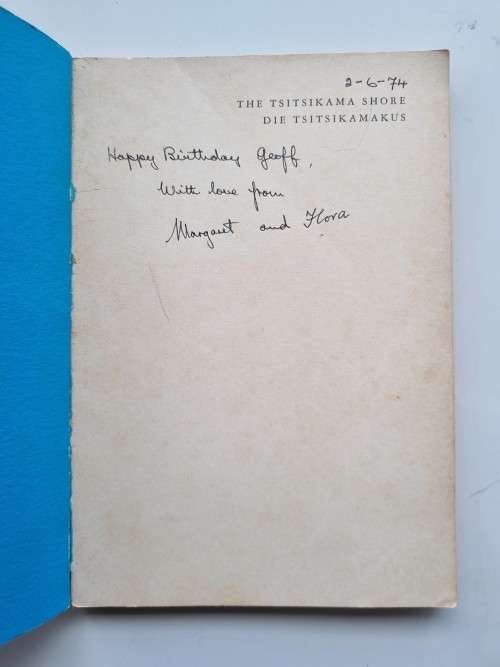 2-6-74
THE TSITSIKAMA SHORE
DIE TSITSIKAMAKUS
Happy Birthday Geoff,
With love from
Margaret and Flora